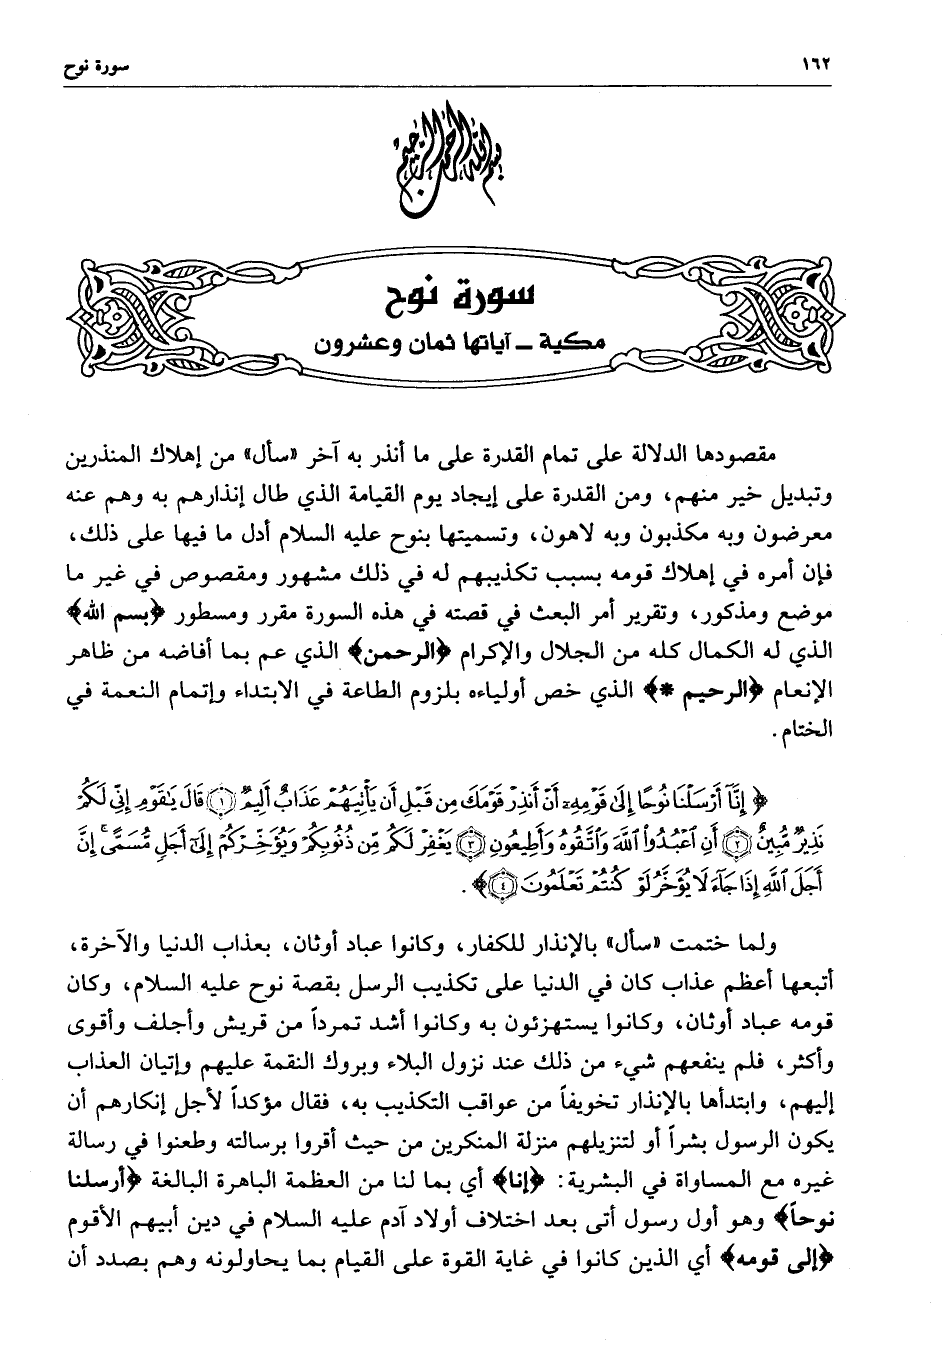 ١٦٢ سورة نوح
بسم الله الرحمن الرحيم
سورة نوح
مكية ــ آياتها ثمان وعشرون
مقصودها الدلالة على تمام القدرة على ما أنذر به آخر «سأل» من إهلاك المنذرين
وتبديل خير منهم، ومن القدرة على إيجاد يوم القيامة الذي طال إنذارهم به وهم عنه
معرضون وبه مكذبون وبه لاهون، وتسميتها بنوح عليه السلام أدل ما فيها على ذلك،
فإن أمره في إهلاك قومه بسبب تكذيبهم له في ذلك مشهور ومقصوص في غير ما
موضع ومذكور، وتقرير أمر البعث في قصته في هذه السورة مقرر ومسطور ﴿بسم الله﴾
الذي له الكمال كله من الجلال والإكرام ﴿الرحمن﴾ الذي عم بما أفاضه من ظاهر
الإنعام ﴿الرحيم *﴾ الذي خص أولياءه بلزوم الطاعة في الابتداء وإتمام النعمة في
الختام.
﴿إِنَّآ أَرْسَلْنَا نُوحًا إِلَىٰ قَوْمِهِۦٓ أَنْ أَنذِرْ قَوْمَكَ مِن قَبْلِ أَن يَأْتِيَهُمْ عَذَابٌ أَلِيمٌ ﴿١﴾ قَالَ يَٰقَوْمِ إِنِّي لَكُمْ
نَذِيرٌ مُّبِينٌ ﴿٢﴾ أَنِ ٱعْبُدُوا۟ ٱللَّهَ وَٱتَّقُوهُ وَأَطِيعُونِ ﴿٣﴾ يَغْفِرْ لَكُم مِّن ذُنُوبِكُمْ وَيُؤَخِّرْكُمْ إِلَىٰٓ أَجَلٍ مُّسَمًّى ۚ إِنَّ
أَجَلَ ٱللَّهِ إِذَا جَآءَ لَا يُؤَخَّرُ لَوْ كُنتُمْ تَعْلَمُونَ ﴿٤﴾﴾.
ولما ختمت «سأل» بالإنذار للكفار، وكانوا عباد أوثان، بعذاب الدنيا والآخرة،
أتبعها أعظم عذاب كان في الدنيا على تكذيب الرسل بقصة نوح عليه السلام، وكان
قومه عباد أوثان، وكانوا يستهزئون به وكانوا أشد تمرداً من قريش وأجلف وأقوى
وأكثر، فلم ينفعهم شيء من ذلك عند نزول البلاء وبروك النقمة عليهم وإتيان العذاب
إليهم، وابتدأها بالإنذار تخويفاً من عواقب التكذيب به، فقال مؤكداً لأجل إنكارهم أن
يكون الرسول بشراً أو لتنزيلهم منزلة المنكرين من حيث أقروا برسالته وطعنوا في رسالة
غيره مع المساواة في البشرية: ﴿إنا﴾ أي بما لنا من العظمة الباهرة البالغة ﴿أرسلنا
نوحاً﴾ وهو أول رسول أتى بعد اختلاف أولاد آدم عليه السلام في دين أبيهم الأقوم
﴿إلى قومه﴾ أي الذين كانوا في غاية القوة على القيام بما يحاولونه وهم بصدد أن